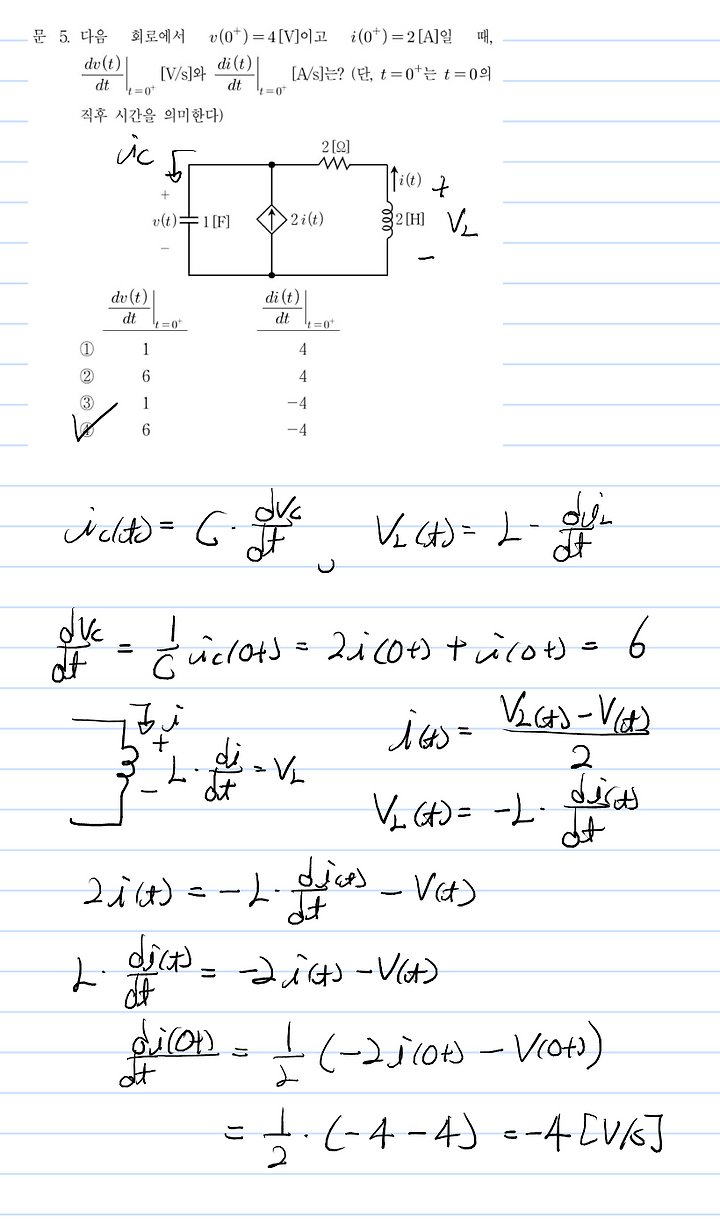 문 5. 다음 회로에서 v(0⁺)=4[V]이고 i(0⁺)=2[A]일 때,
dv(t)/dt|t=0⁺ [V/s]와 di(t)/dt|t=0⁺ [A/s]는? (단, t=0⁺는 t=0의
직후 시간을 의미한다)
ic
2[Ω]
+ i(t) +
v(t) 1[F] 2i(t) 2[H] VL
− −
dv(t)/dt|t=0⁺ di(t)/dt|t=0⁺
① 1 4
② 6 4
③ 1 −4
④ 6 −4
ic(t) = C · dVc/dt , VL(t) = L · diL/dt
dVc/dt = 1/C ic(0+) = 2i(0+) + i(0+) = 6
i
+ − L · di/dt = VL
i(t) = (VL(t) − V(t))/2
VL(t) = −L · di(t)/dt
2i(t) = −L · di(t)/dt − V(t)
L · di(t)/dt = −2i(t) − V(t)
di(0+)/dt = 1/2 (−2i(0+) − V(0+))
= 1/2 · (−4−4) = −4 [V/s]